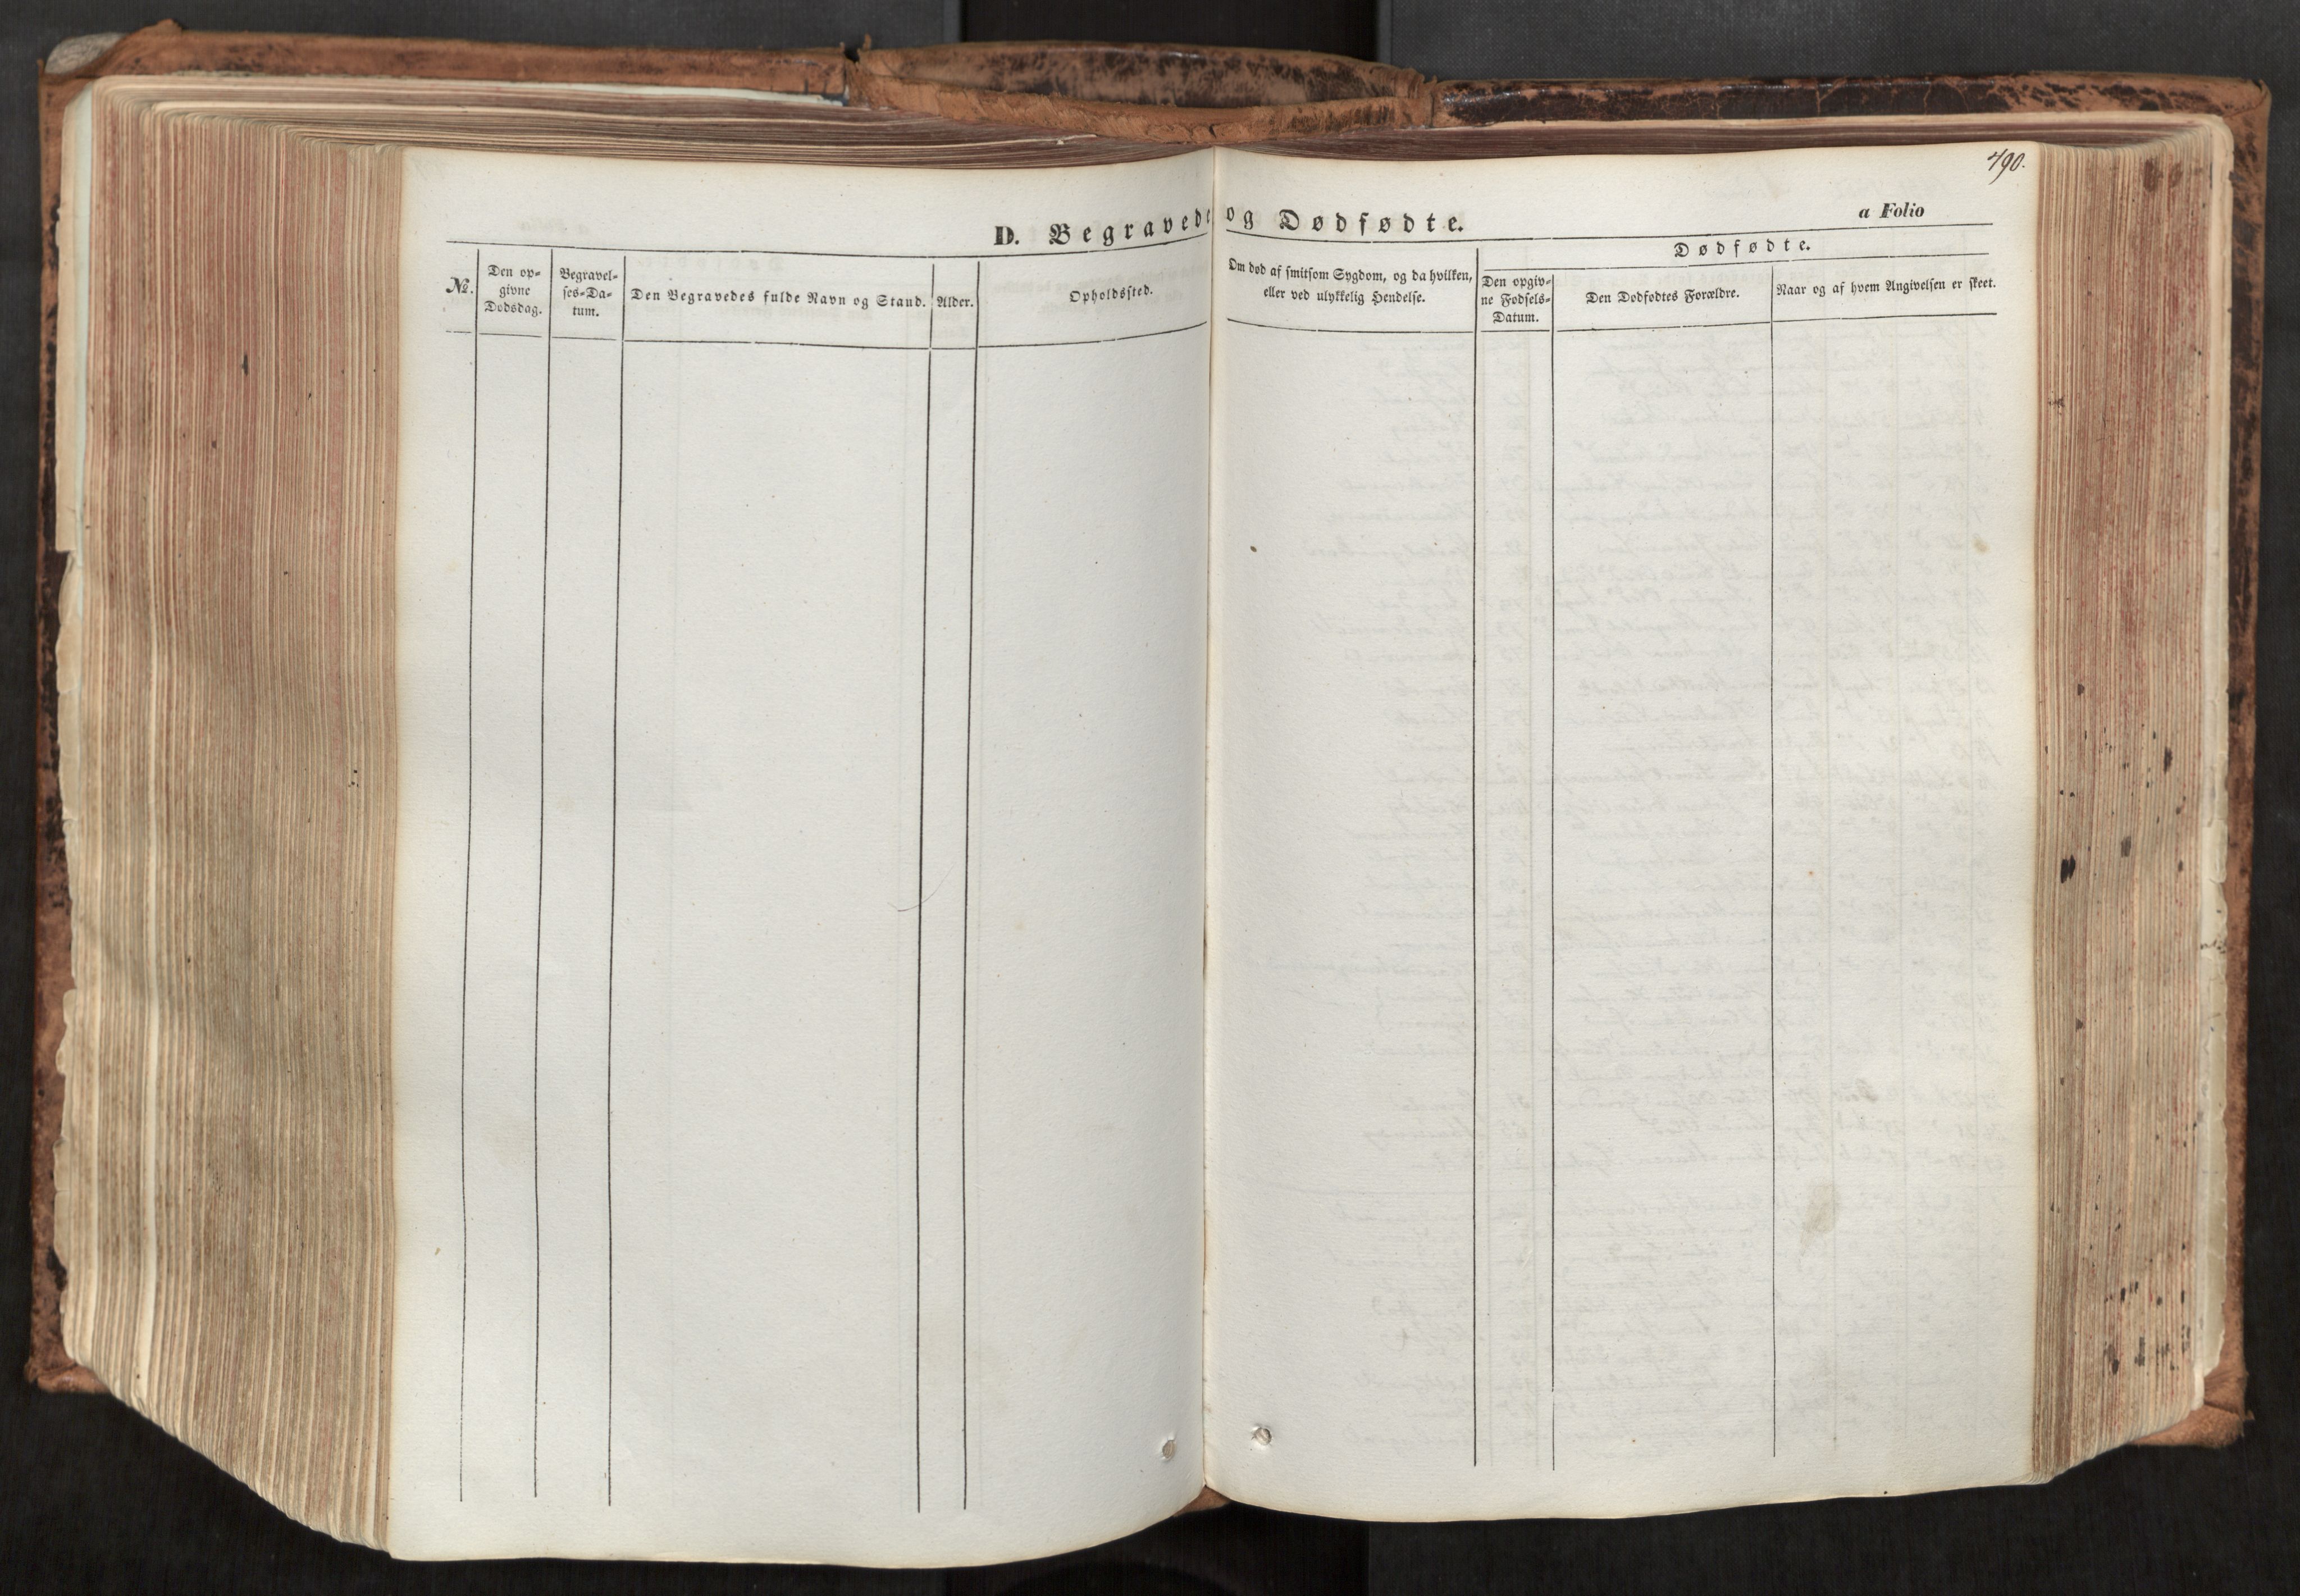 490.
D. Begravede og Dødfødte.
a Folio
Dødfødte.
№.
Den op=
givne
Dødsdag.
Begravel=
ses=Da=
tum.
Den Begravedes fulde Navn og Stand.
Alder.
Opholdssted.
Om død af smitsom Sygdom, og da hvilken,
eller ved ulykkelig Hendelse.
Den opgiv=
ne Fødsels=
Datum.
Den Dødfødtes Forældre.
Naar og af hvem Angivelsen er skeet.